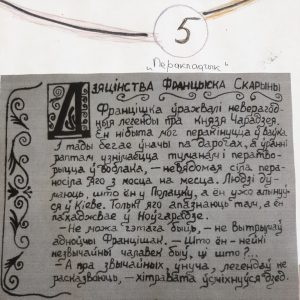 5
"Перакладчык"
ДЗЯЦІНСТВА ФРАНЦЫСКА СКАРЫНЫ
Францішка ўражвалі неверагод-
ныя легенды пра князя Чарадзея.
Ён нібыта мог перакінуцца ў ваўка,
і тады бегае ўначы па дарогах, а ўранні
раптам узнімаецца туманам і ператво-
рыцца ў воблака, — невядомая сіла пера-
носіла яго з месца на месца. Людзі ду-
маюць, што ён у Полацку, а ён ужо апынуў-
ся ў Кіеве. Толькі яго апазнаюць там, а ён
пахаджвае ў Ноўгарадзе.
— Не можа гэтага быць, — не вытрываў
аднойчы Францішак. — Што ён — нейкі
незвычайны чалавек быў, ці што?..
— А пра звычайных, унуча, легендаў не
расказваюць, — хітравата ўсміхнуўся дзед.